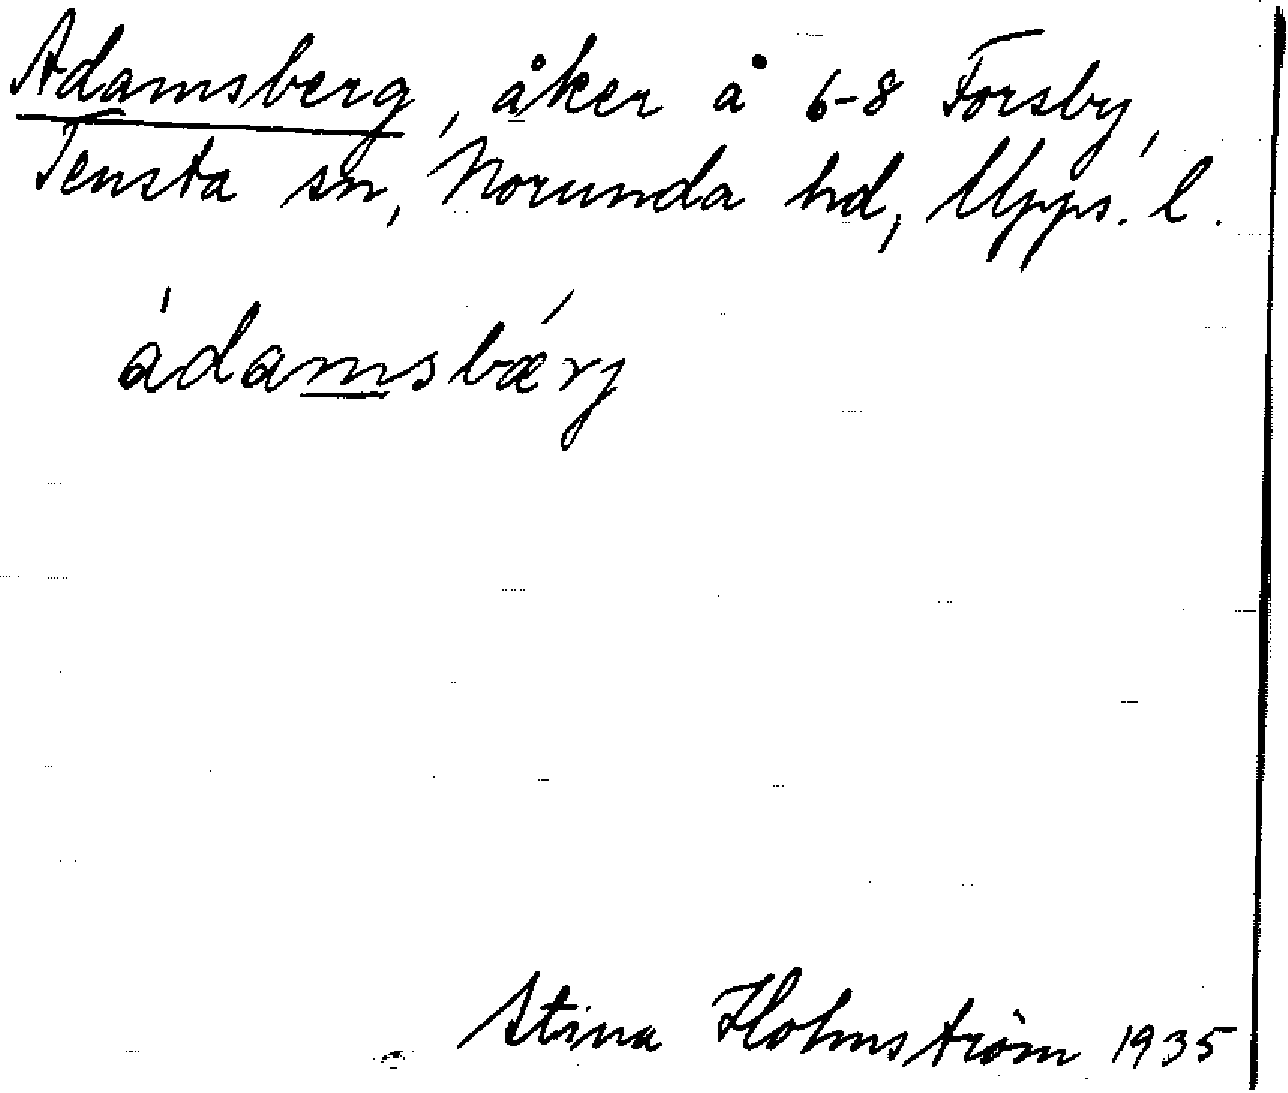 Adamsberg, åker å 6-8 Forsby,
Tensta sn, Norunda hd, Upps. l.
ádamsbǽrj
Stina Holmström 1935